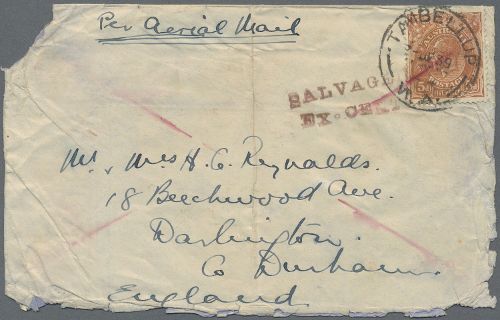 Per Aerial Mail
TAMBELLUP
W.A.
AUSTRALIA
POSTAGE
SALVAGED
EX. CENT
Mr. , Mrs H. C. Reynolds.
18 Beechwood Ave.
Darlington.
Co Durham.
England